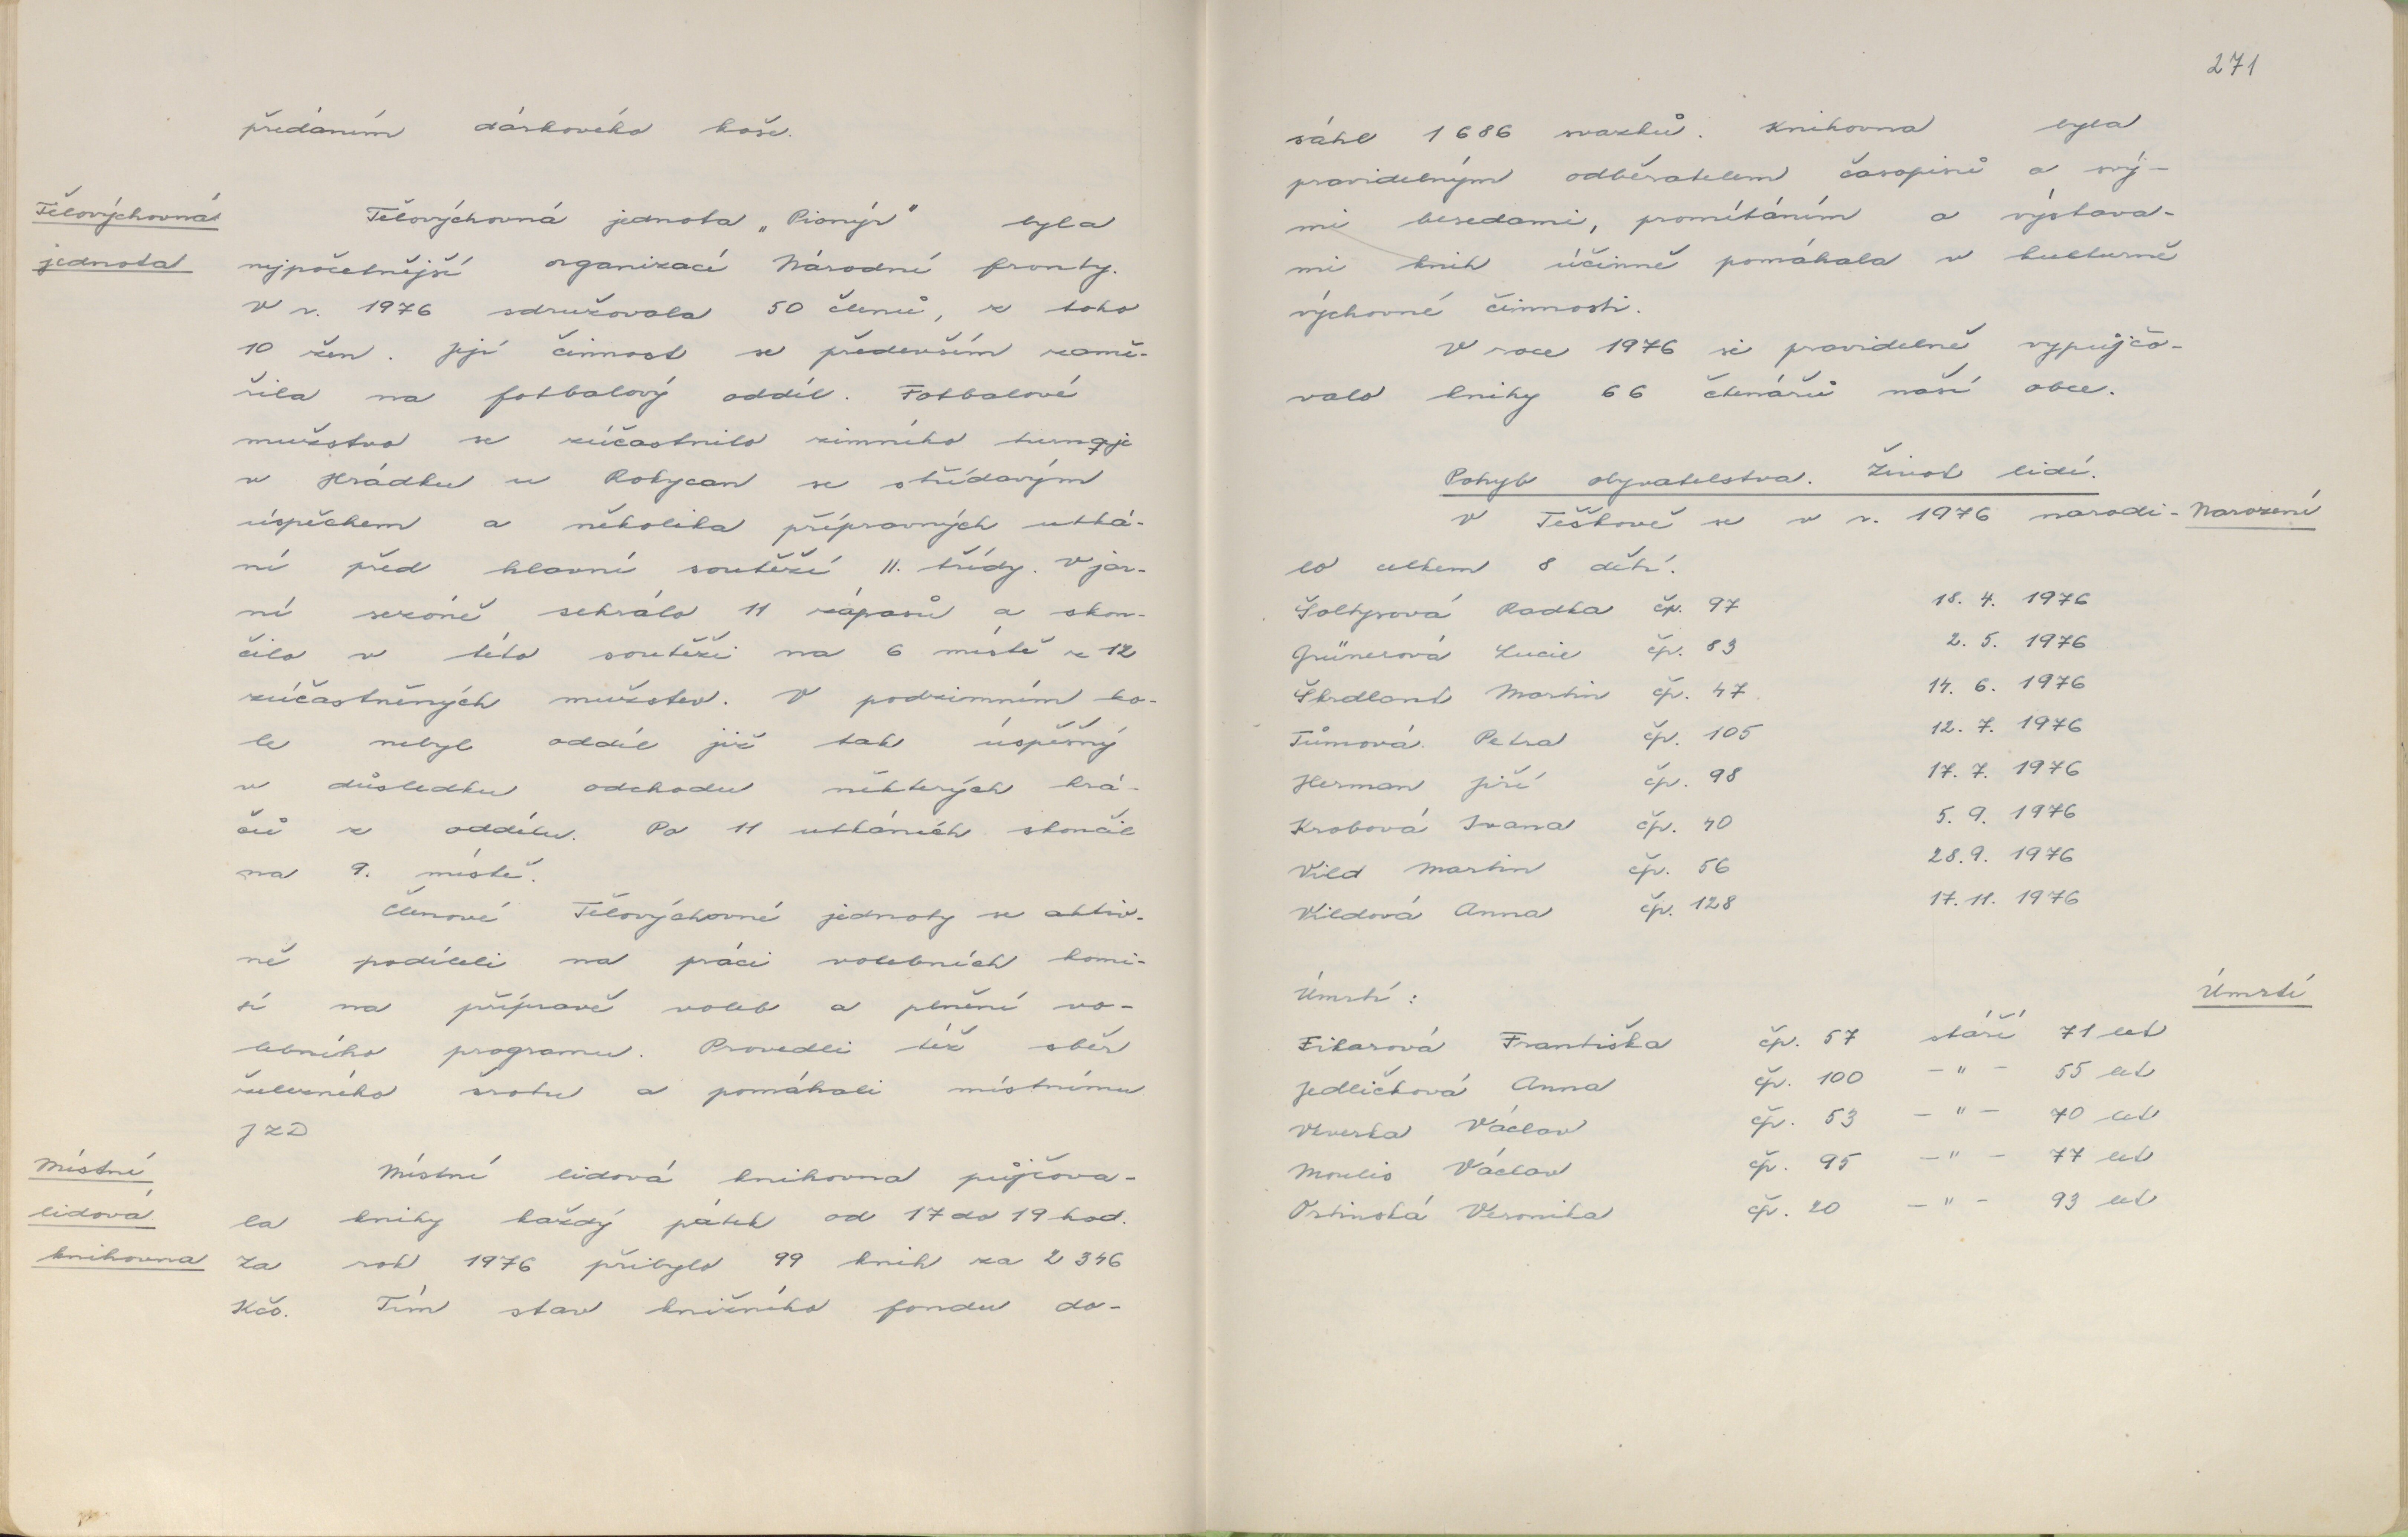 předáním dárkového koše.
Tělovýchovná
jednota
Tělovýchovná jednota „Pionýr" byla
nejpočetnější organizací Národní fronty.
V r. 1976 sdružovala 50 členů, z toho
10 žen. Její činnost se především zamě-
řila na fotbalový oddíl. Fotbalové
mužstvo se zúčastnilo zimního turnaje
v Hrádku u Rokycan se střídavým
úspěchem a několika přípravných utká-
ní před hlavní soutěží II. třídy. V jar-
ní sezóně sehrálo 11 zápasů a skon-
čilo v této soutěži na 6 místě z 12
zúčastněných mužstev. V podzimním ko-
le nebyl oddíl již tak úspěšný
v důsledku odchodu některých hrá-
čů z oddílu. Po 11 utkáních skončil
na 9. místě.
Členové Tělovýchovné jednoty se aktiv-
ně podíleli na práci volebních komi-
sí na přípravě voleb a plnění vo-
lebního programu. Provedli též sběr
železného šrotu a pomáhali místnímu
JZD
Místní
lidová
knihovna
Místní lidová knihovna půjčova-
la knihy každý pátek od 17 do 19 hod.
Za rok 1976 přibylo 99 knih za 2 346
Kčs. Tím stav knižního fondu do-
271
sáhl 1 686 svazků. Knihovna byla
pravidelným odběratelem časopisů a svý-
mi besedami, promítáním a výstava-
mi knih účinně pomáhala v kulturně
výchovné činnosti.
V roce 1976 si pravidelně vypůjčo-
valo knihy 66 čtenářů naší obce.
Pohyb obyvatelstva. Život lidí.
V Těškově se v r. 1976 narodi- Narození
lo celkem 8 dětí.
Šoltysová Radka čp. 97 18. 4. 1976
Grünerová Lucie čp. 83 2. 5. 1976
Škrdlant Martin čp. 47 14. 6. 1976
Tůmová Petra čp. 105 12. 7. 1976
Herman Jiří čp. 98 17. 7. 1976
Krobová Ivana čp. 40 5. 9. 1976
Vild Martin čp. 56 28. 9. 1976
Vildová Anna čp. 128 17. 11. 1976
Úmrtí : Úmrtí
Fikarová Františka čp. 57 stáří 71 let
Jedličková Anna čp. 100 – " – 55 let
Kverka Václav čp. 53 – " – 70 let
Moulis Václav čp. 95 – " – 77 let
Veronika čp. 20 – " – 93 let